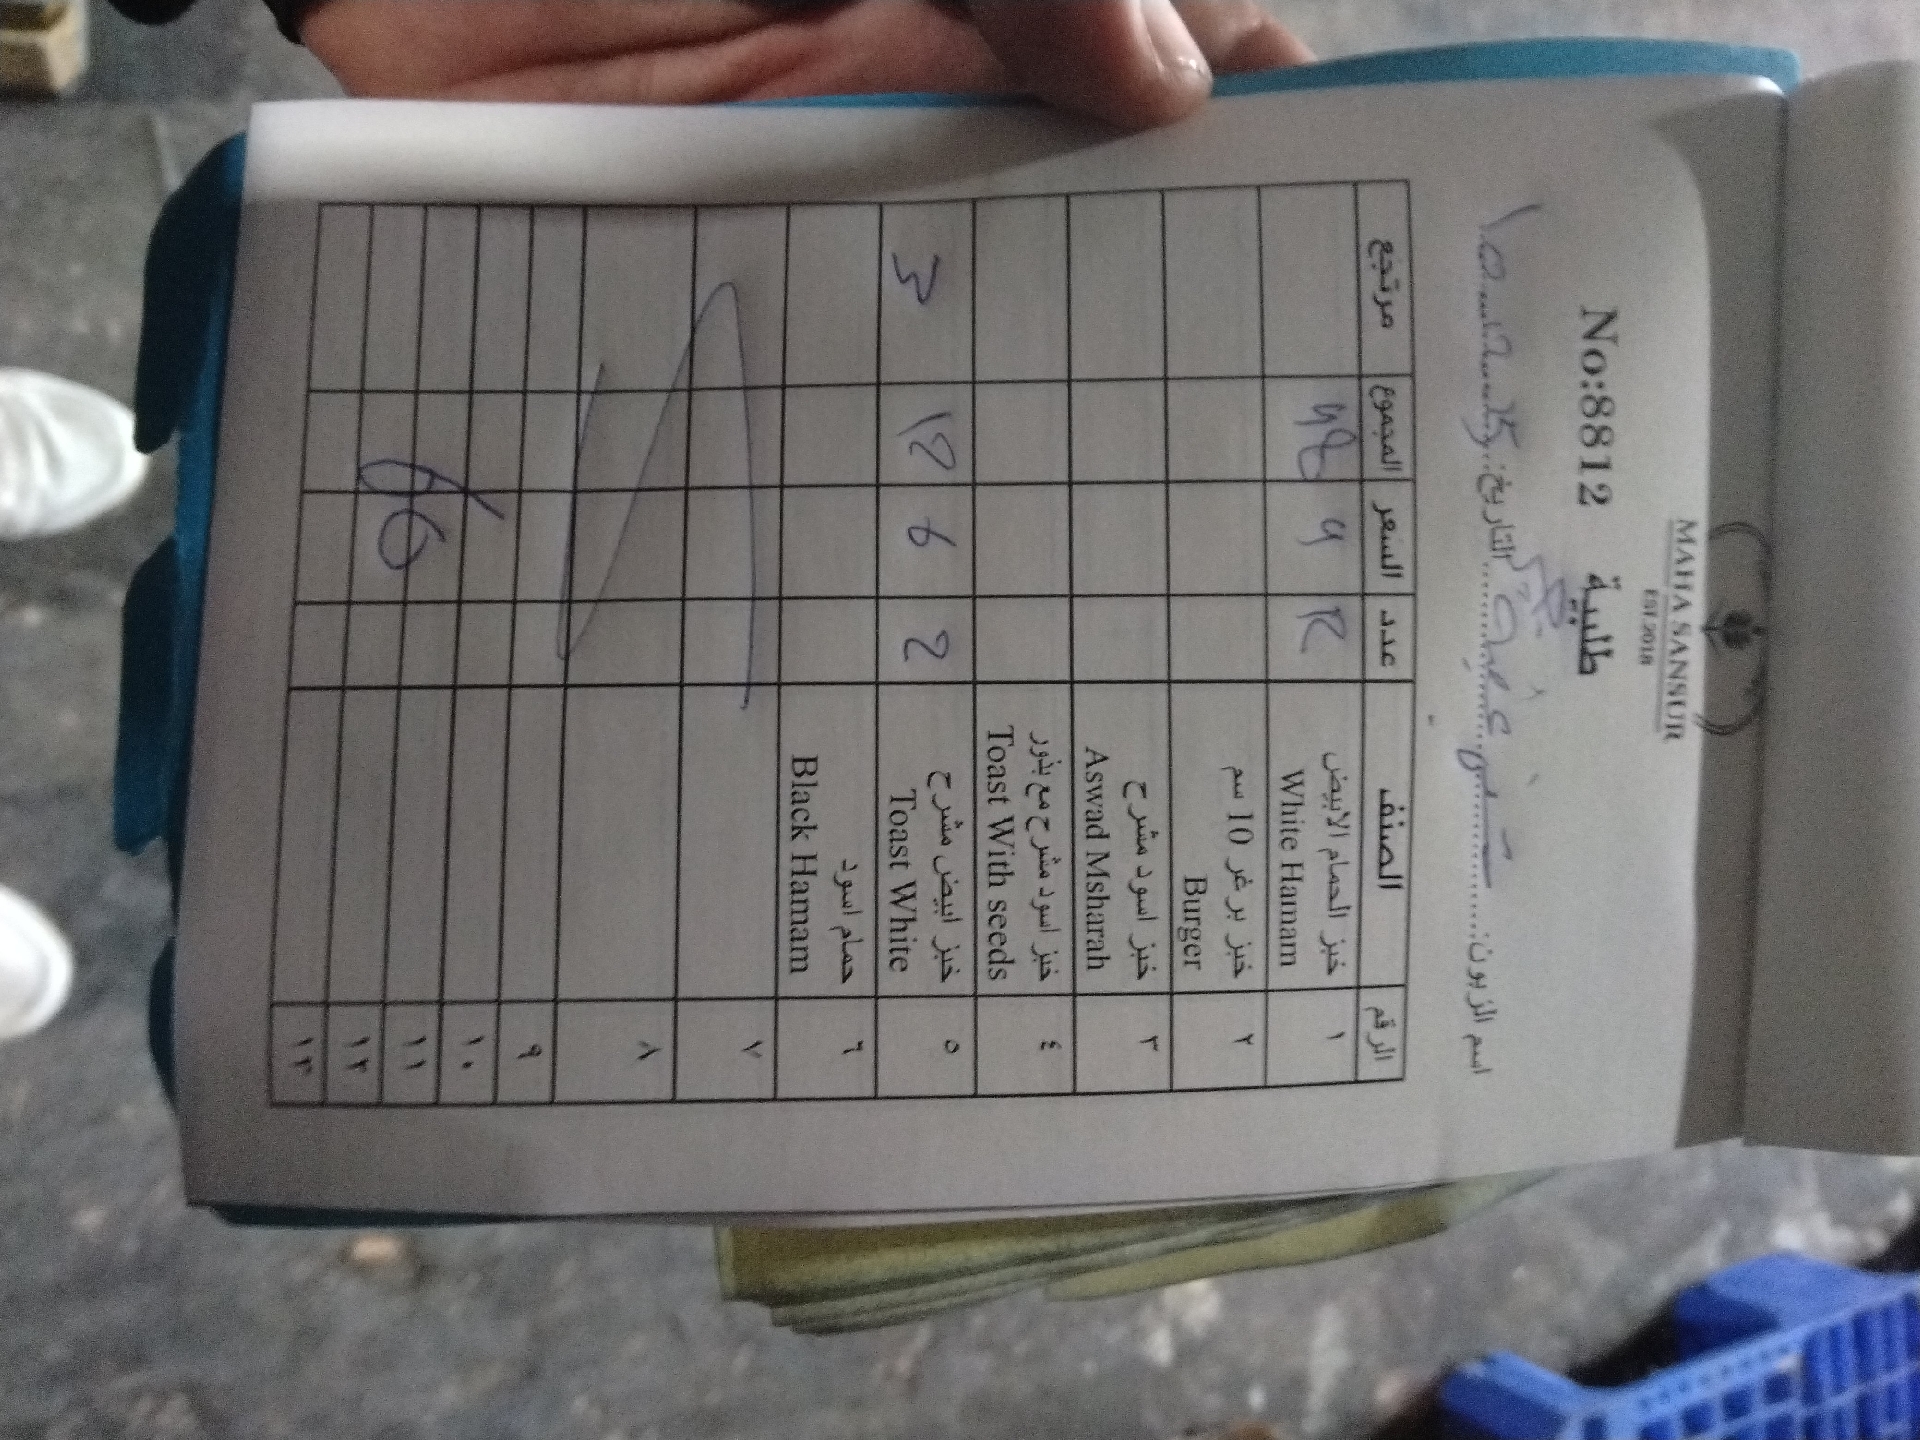 MAHA SANSUR
EST 2018
No:8812 طلبية
اسم الزبون: التاريخ:
الرقم الصنف عدد السعر المجموع مرتجع
١ خبز الحمام الابيض White Hamam 12 4 48
٢ خبز برغر 10 سم Burger
٣ خبز اسود مشرح Aswad Msharah
٤ خبز اسود مشرح مع بذور Toast With seeds
٥ خبز ابيض مشرح Toast White 6 18 3
٦ حمام اسود Black Hamam
٧
٨
٩
١٠
١١
١٢
١٣
66